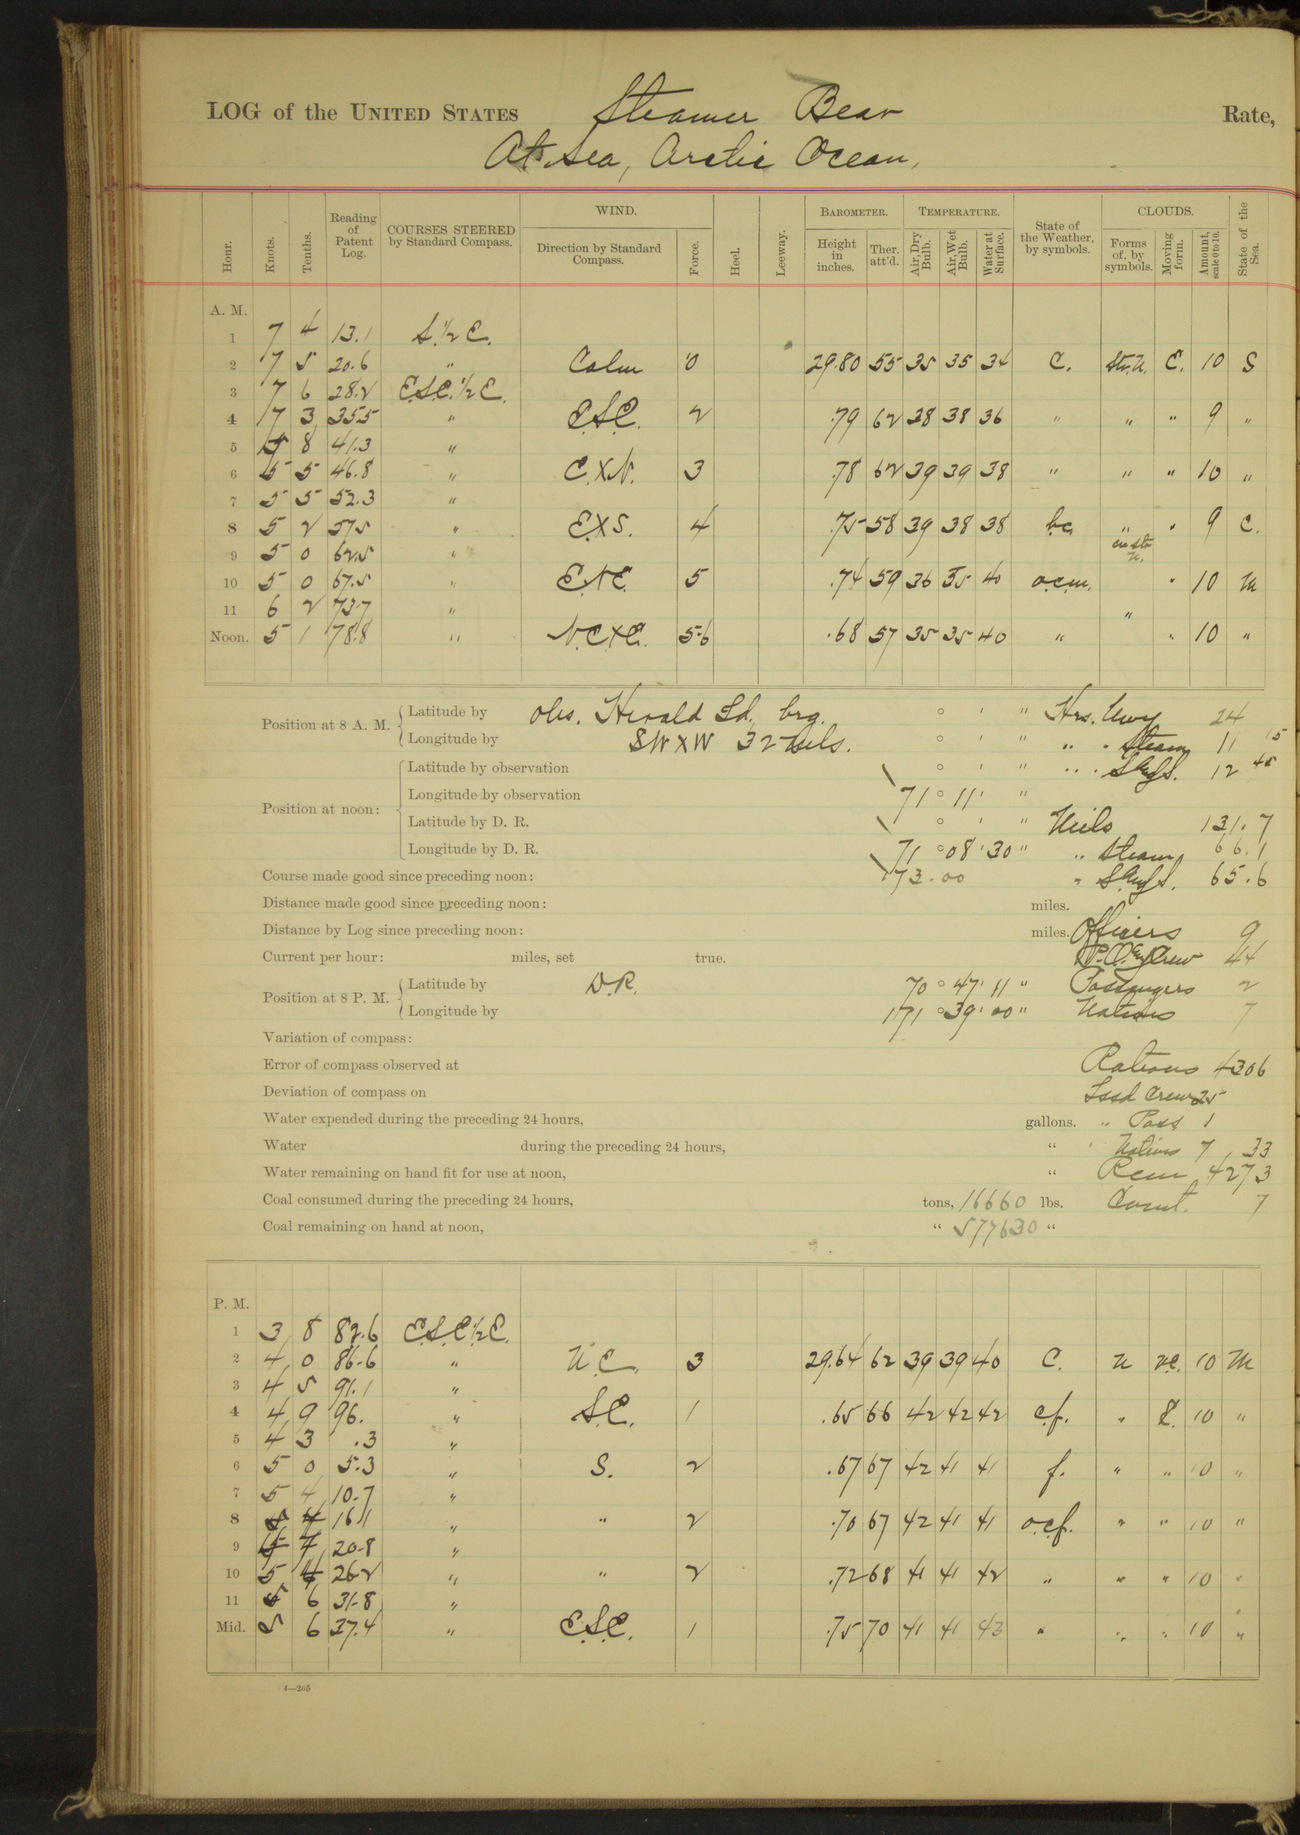 LOG of the UNITED STATES Steamer Bear Rate,
At Sea, Arctic Ocean,
Hour. Knots. Tenths. Reading of Patent Log. COURSES STEERED by Standard Compass. WIND. Direction by Standard Compass. Force. Heel. Leeway. BAROMETER. Height in inches. Ther. att'd. TEMPERATURE. Air, Dry Bulb. Air, Wet Bulb. Water at Surface. State of the Weather, by symbols. CLOUDS. Forms of, by symbols. Moving form. Amount, scale 0 to 10. State of the Sea.
A. M.
1 7 4 13.1 S. 1/2 E.
2 7 5 20.6 " Calm 0 29.80 55 35 35 34 C. Str. N. E. 10 S
3 7 6 28.2 E.S.E. 1/2 E.
4 7 3 35.5 " E.S.E. 2 .79 62 38 38 36 " " " 9 "
5 5 8 41.3 "
6 5 5 46.8 " E. X N. 3 .78 62 39 39 38 " " " 10 "
7 5 5 52.3 "
8 5 2 57.5 " E. X S. 4 .75 58 39 38 38 bc " " 9 C.
9 5 0 62.5 " cu str n.
10 5 0 67.5 " E.N.E. 5 .74 59 36 35 40 o.c.m. " 10 M
11 6 2 73.7 "
Noon. 5 1 78.8 " N.E. X E. 5-6 .68 57 35 35 40 " " " 10 "
Position at 8 A. M. Latitude by obs. Herald Id. brg. ° ' " Hrs. Uwy 24
Longitude by SW X W 32 Mls. ° ' " " " Steam 11 15
Latitude by observation ° ' " " " S & S. 12 45
Position at noon: Longitude by observation 71 ° 11 ' "
Latitude by D. R. ° ' " Mils 131.7
Longitude by D. R. 71 ° 08 ' 30 " " Steam 66.1
Course made good since preceding noon: 173.00 " S & S. 65.6
Distance made good since preceding noon: miles.
Distance by Log since preceding noon: miles. Officers 9
Current per hour: miles, set true. P.O. & Crew 44
Position at 8 P. M. Latitude by D.R. 70 ° 47 ' 11 " Passengers 2
Longitude by 171 ° 39 ' 00 " Natives 7
Variation of compass:
Error of compass observed at Rations 4306
Deviation of compass on Issd Crew 25
Water expended during the preceding 24 hours, gallons. " Pass 1
Water during the preceding 24 hours, " " Natives 7 33
Water remaining on hand fit for use at noon, " Rem 4273
Coal consumed during the preceding 24 hours, tons, 16660 lbs. Comt. 7
Coal remaining on hand at noon, " 577630 "
P. M.
1 3 8 82.6 E.S.E. 1/2 E.
2 4 0 86.6 " N.E. 3 29.64 62 39 39 40 C. N NE. 10 M
3 4 5 91.1 "
4 4 9 96. " S.E. 1 .65 66 42 42 42 c.f. " E. 10 "
5 4 3 .3 "
6 5 0 5.3 " S. 2 .67 67 42 41 41 f. " " 10 "
7 5 4 10.7 "
8 5 4 16.1 " " 2 .70 67 42 41 41 o.c.f. " " 10 "
9 4 7 20.8 "
10 5 4 26.2 " " 2 .72 68 41 41 42 " " " 10 "
11 5 6 31.8 "
Mid. 5 6 37.4 " E.S.E. 1 .75 70 41 41 43 " " " 10 "
4—265